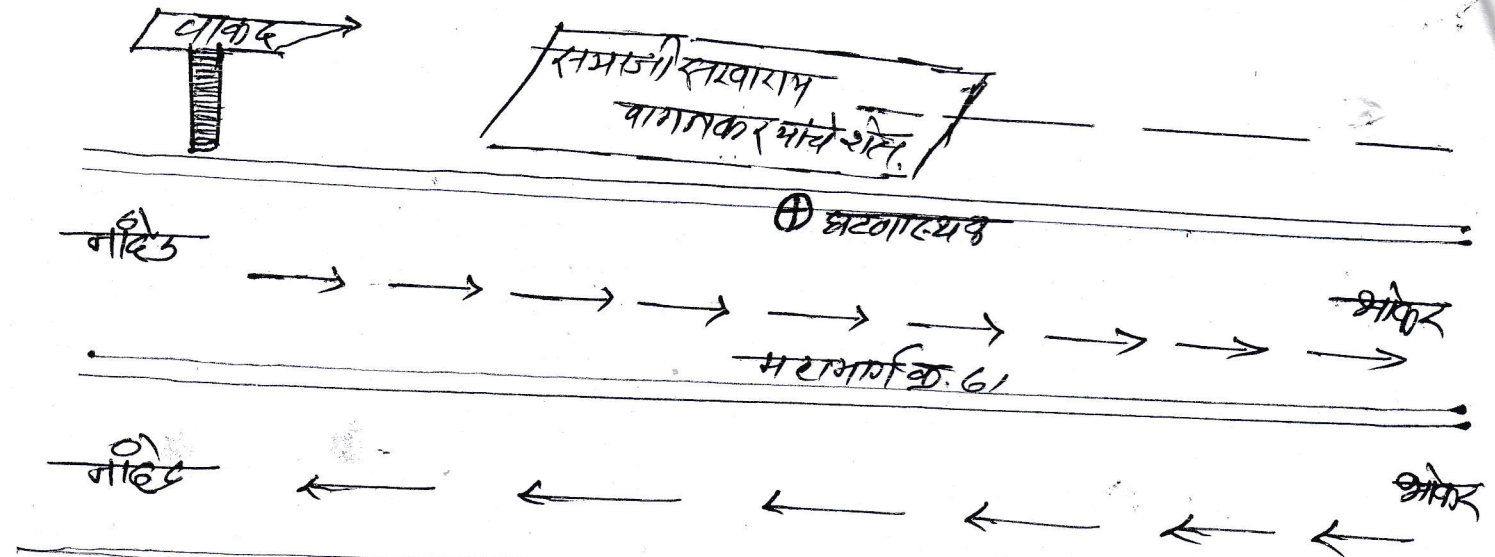 वाकद
समाजी सखाराम
वागतकर यांचे शेत.
घटनास्थळ
नांदेड
भोकर
महामार्ग क्र. 61
नांदेड
भोकर